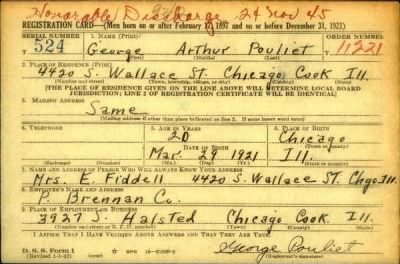 Honorable Discharge 24 Nov 45
REGISTRATION CARD—(Men born on or after February 17, 1897 and on or before December 31, 1921)
SERIAL NUMBER 1. NAME (Print) ORDER NUMBER
T 524 George Arthur Pouliet 11221
2. PLACE OF RESIDENCE (Print)
4420 S. Wallace St. Chicago Cook Ill.
[THE PLACE OF RESIDENCE GIVEN ON THE LINE ABOVE WILL DETERMINE LOCAL BOARD
JURISDICTION; LINE 2 OF REGISTRATION CERTIFICATE WILL BE IDENTICAL]
3. MAILING ADDRESS
Same
[Mailing address if other than place indicated on line 2. If same insert word same]
4. TELEPHONE 5. AGE IN YEARS 6. PLACE OF BIRTH
20 Chicago
DATE OF BIRTH
Mar. 29 1921 Ill.
7. NAME AND ADDRESS OF PERSON WHO WILL ALWAYS KNOW YOUR ADDRESS
Mrs. E. Fiddell 4420 S. Wallace St. Chgo Ill.
8. EMPLOYER'S NAME AND ADDRESS
P. Brennan Co.
9. PLACE OF EMPLOYMENT OR BUSINESS
3927 S. Halsted Chicago Cook Ill.
I AFFIRM THAT I HAVE VERIFIED ABOVE ANSWERS AND THAT THEY ARE TRUE.
D. S. S. Form 1 George Pouliet
(Registrant's signature)